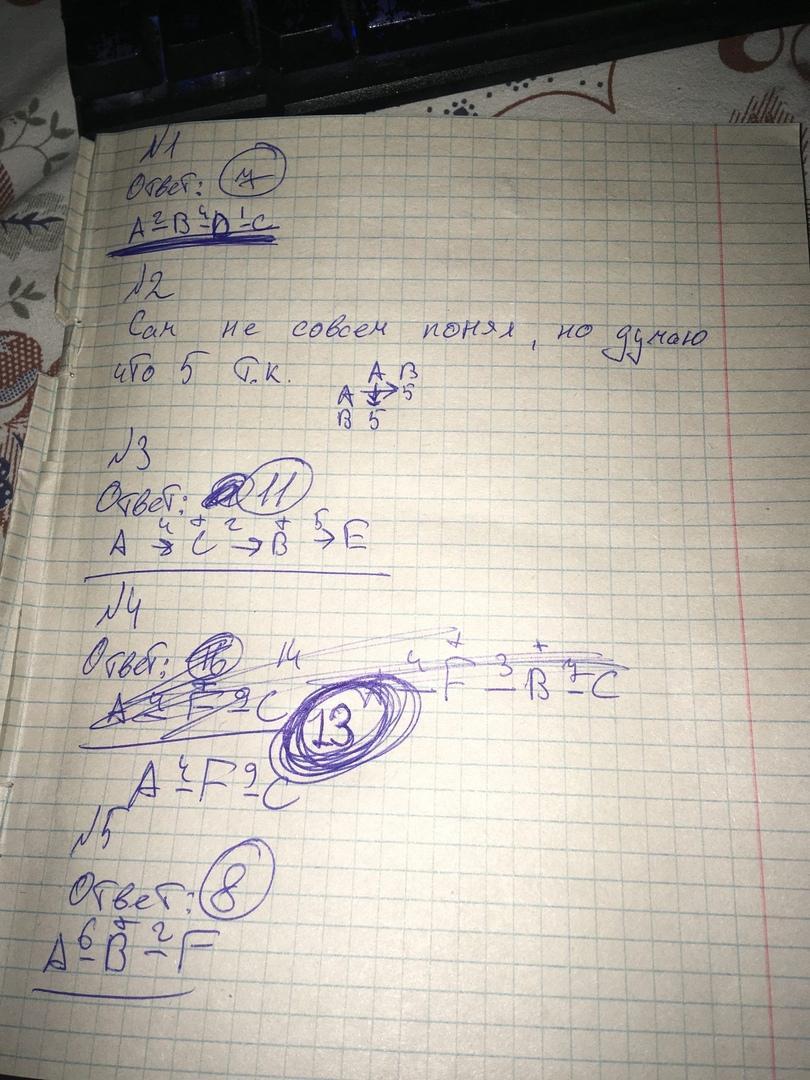 №1
Ответ: 7
A 2 – B 4 – D 1 – C
№2
Сам не совсем понял, но думаю
что 5 т.к.
A B
A → 5
B 5
№3
Ответ: 11
A 4 → + C 2 → + B 5 → E
№4
Ответ: 14
4 – F + 3 – B + 7 – C
A 4 – F + 9 – C
13
A 4 – F 9 – C
№5
Ответ: 8
A 6 – B + 2 – F